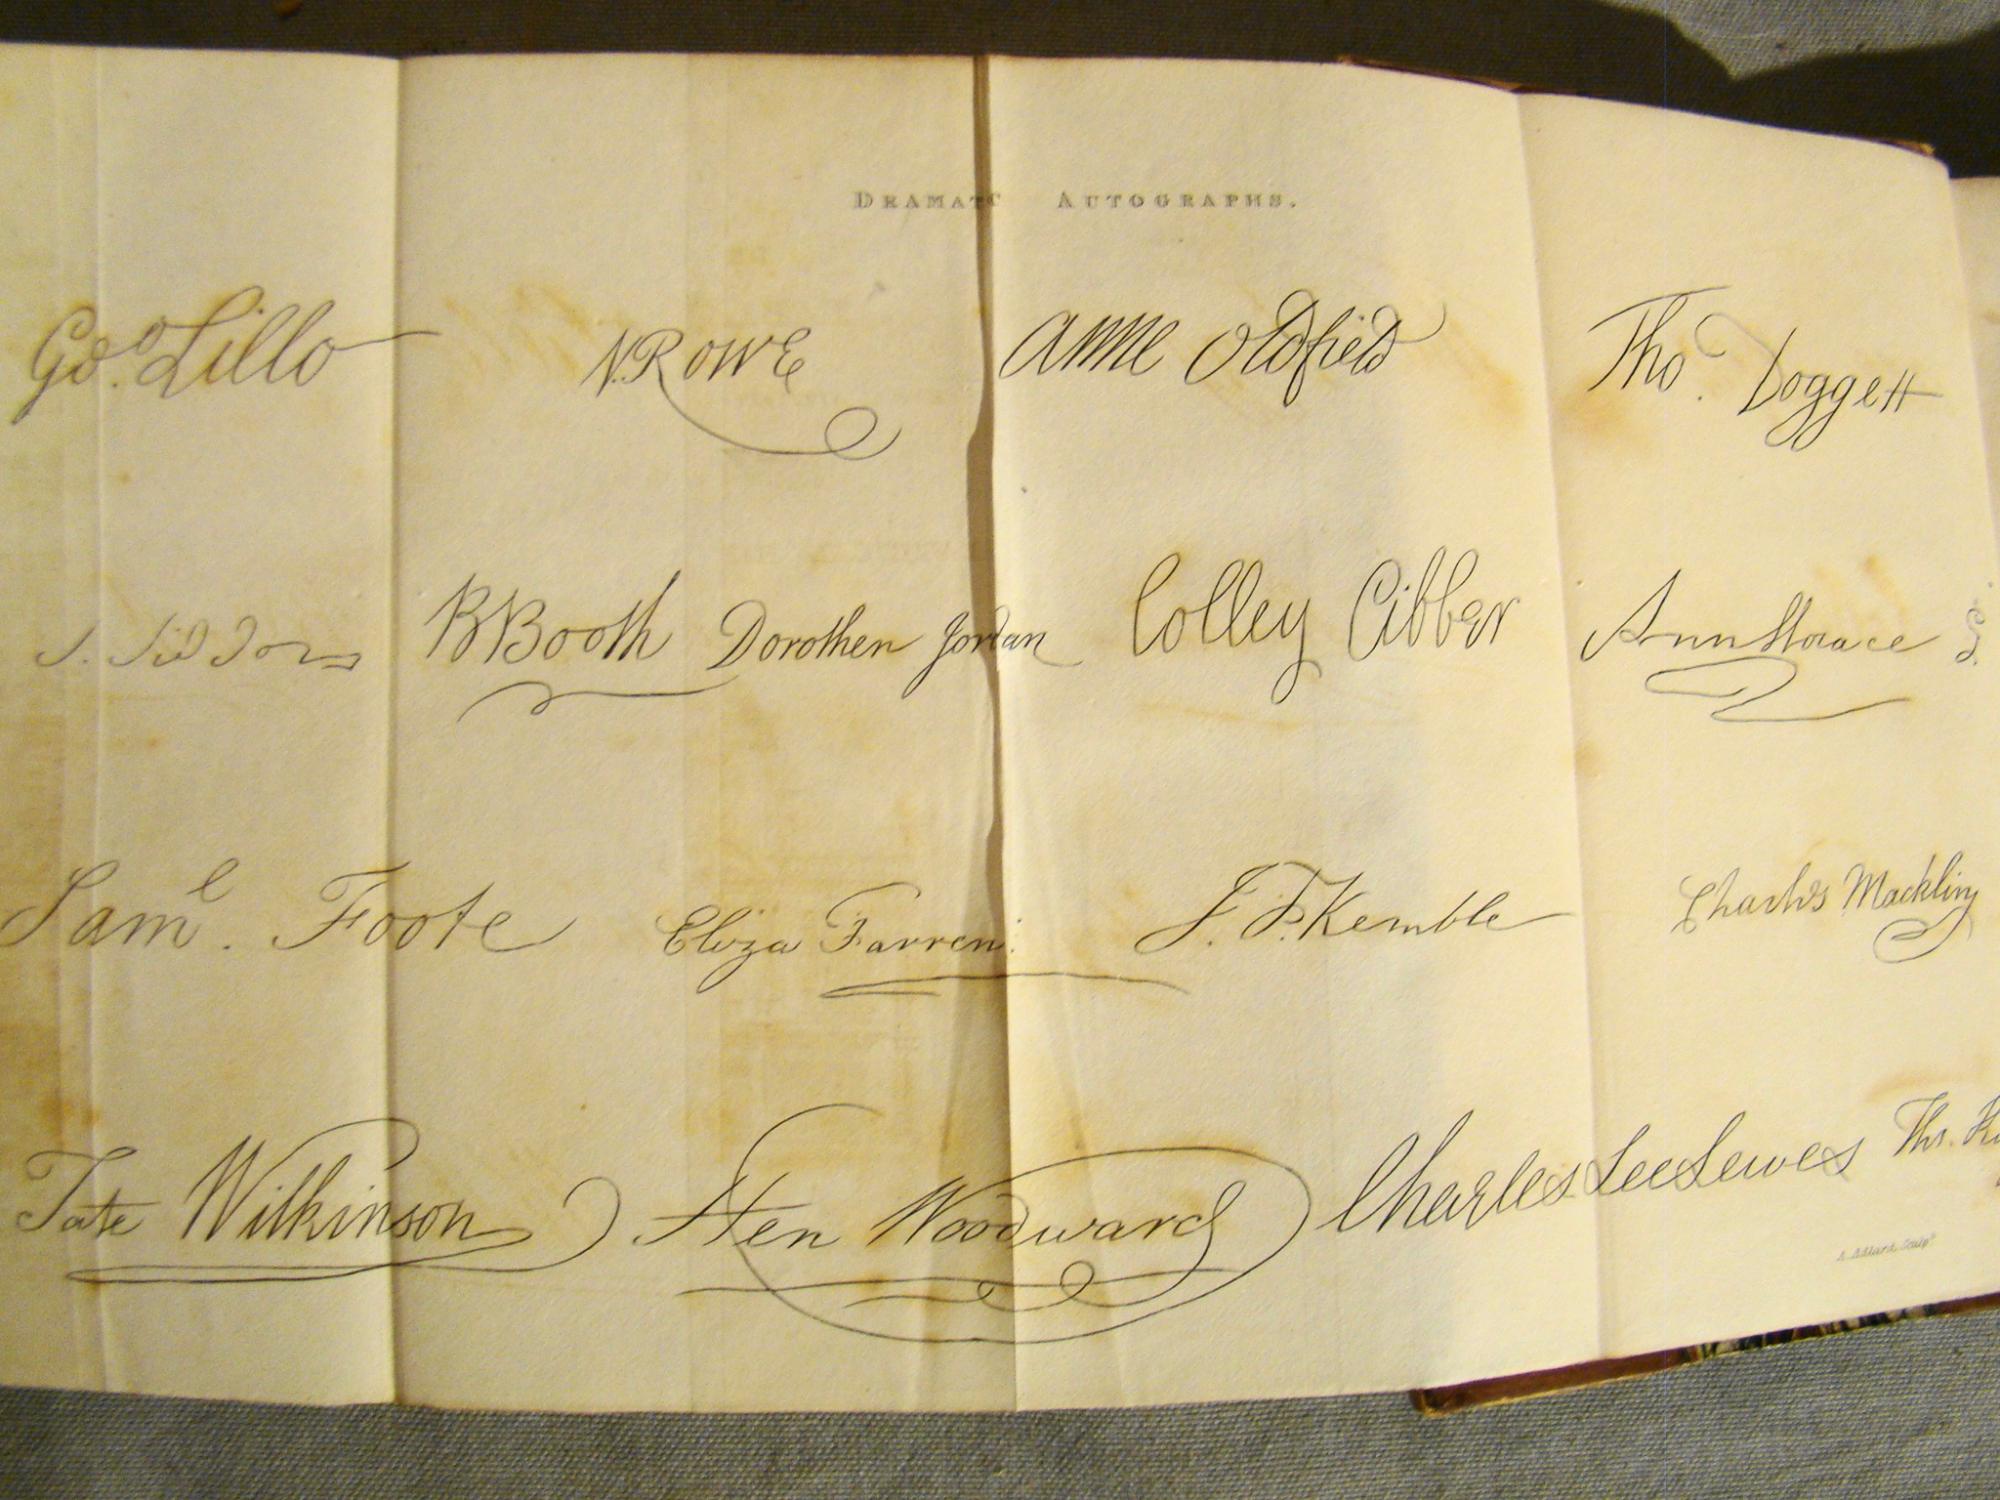 DRAMATC AUTOGRAPHS.
Geo. Lillo N. Rowe Anne Oldfield Tho. Doggett
S. Siddons B Booth Dorothea Jordan Colley Cibber Ann Horace S.
Saml. Foote Eliza Farren. J. P. Kemble Charles Macklin
Tate Wilkinson Hen Woodward Charles Lee Lewes Ths.
A. Adlard. Sculpt.